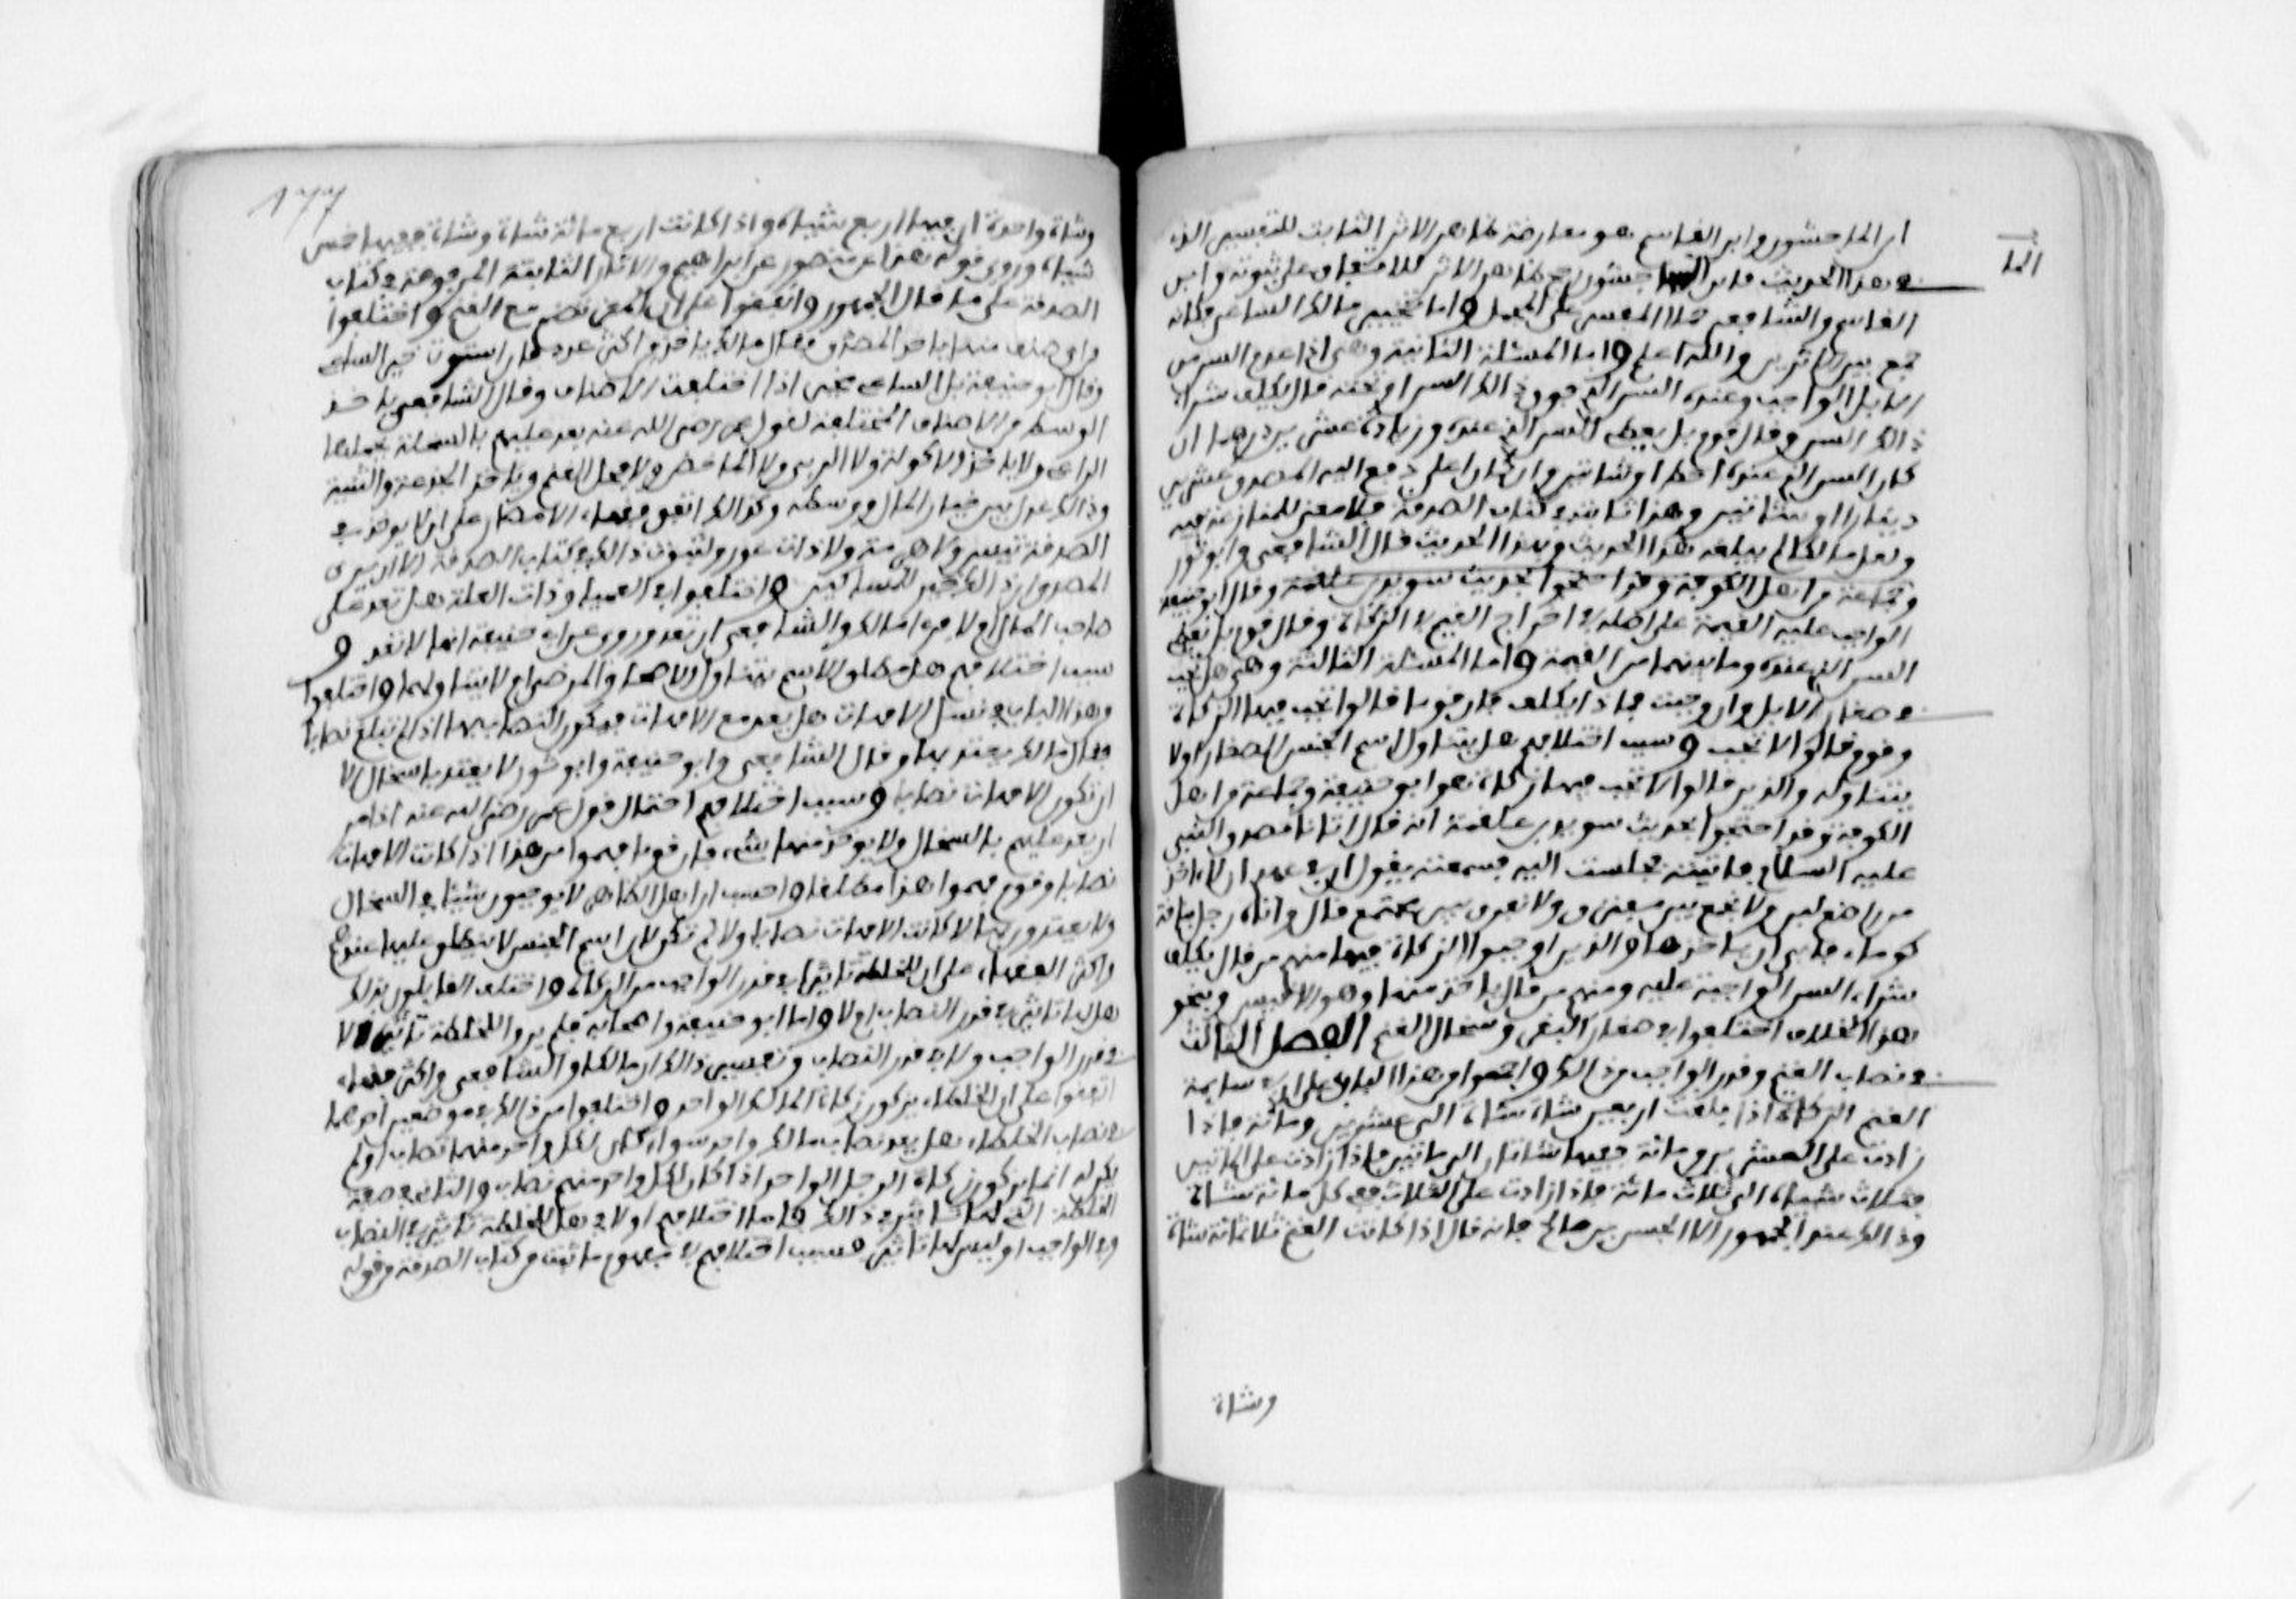 الما
ابن الماجشون وابن القاسم هو معارضة ظاهر الاثر الثابت للتفسير الذي
في هذا الحديث فابن الماجشون رجح ظاهر الاثر للاتفاق على ثبوته وابن
القاسم والشافعي حملا المفسر على المجمل واما تخيير مالك الساعي فكانه
جمع بين الاثرين والله اعلم واما المسئلة الثانية وهي اذا عدم السن من
الابل الواجب وعنده السن الذي فوق ذالك السن او تحته قال يكلف شراء
ذالك السن وقال قوم بل يعطي السن الذي عنده وزيادة عشرين درهما ان
كان السن الذي عنده احط او شاتين وان كان اعلى دفع اليه المصدق عشرين
دينارا او شاتين وهذا ثابت في كتاب الصدقة فلا معنى للمنازعة فيه
ولعل مالكا لم يبلغه هذا الحديث وبهذا الحديث قال الشافعي وابو ثور
وجماعة من اهل الكوفة وقد احتجوا بحديث سويد بن علقمة وقال ابو حنيفة
الواجب عليه القيمة على اصله في اخراج القيم في الزكاة وقال قوم بل يعطي
السن الذي عنده وما بينهما من القيمة واما المسئلة الثالثة وهي هل تجب
في صغار الابل وان وجبت فماذا يكلف فان قوما قالوا تجب فيها الزكاة
وقوم قالوا لا تجب وسبب اختلافهم هل يتناول اسم الجنس الصغار او لا
يتناوله والذين قالوا لا تجب فيها زكاة هو ابو حنيفة وجماعة من اهل
الكوفة وقد احتجوا بحديث سويد بن علقمة انه قال اتانا مصدق النبي
عليه السلام فاتيته فجلست اليه فسمعته يقول ان في عهدي ان لا اخذ
من راضع لبن ولا نجمع بين مفترق ولا نفرق بين مجتمع قال واتاه رجل بناقة
كوماء فابى ان ياخذها والذين اوجبوا الزكاة فيها منهم من قال يكلف
شراء السن الواجبة عليه ومنهم من قال ياخذ منها وهو الاقيس وبنحو
هذا الخلاف اختلفوا في صغار البقر وسخال الغنم الفصل الثالث
في نصاب الغنم وقدر الواجب من ذالك واجمعوا من هذا الباب على ان في سايمة
الغنم الزكاة اذا بلغت اربعين شاة شاة الى عشرين ومائة فاذا
زادت على العشرين ومائة ففيها شاتان الى مائتين فاذا زادت على المائتين
فثلاث شياه الى ثلاث مائة فاذا زادت على الثلاث ففي كل مائة شاة
وذالك عند الجمهور الا الحسن بن صالح فانه قال اذا كانت الغنم ثلاثمائة شاة
وشاة
وشاة واحدة ان فيها اربع شياه واذا كانت اربع مائة شاة وشاة ففيها خمس
شياه وروى قوله هذا عن منصور عن ابراهيم والاثار الثابتة المرفوعة في كتاب
الصدقة على ما قال الجمهور واتفقوا على ان المعز تضم مع الغنم واختلفوا
من اي صنف منها ياخذ المصدق فقال مالك ياخذ من اكثر عددا فان استوت خير الساعي
وقال ابو حنيفة بل الساعي مخير اذا اختلفت الاصناف وقال الشافعي ياخذ
الوسط من الاصناف المختلفة لقول عمر رضي الله عنه يعد عليهم بالسخلة يحملها
الراعي ولا ياخذ الاكولة ولا الربى ولا الماخض ولا فحل الغنم وياخذ الجذعة والثنية
وذالك عدل بين خيار المال ووسطه وكذالك اتفق فقهاء الامصار على ان لا يوخذ في
الصدقة تيس ولا هرمة ولا ذات عور لثبوت ذالك في كتاب الصدقة الا ان يرى
المصدق ان ذالك خير للمساكين واختلفوا في العمياء وذات العلة هل تعد على
صاحب المال ام لا فراى مالك والشافعي ان تعد وروي عن ابي حنيفة انها لا تعد و
سبب اختلافهم هل مطلق الاسم يتناول الاصحاء والمرضى ام لا يتناولها واختلفوا
من هذا الباب في نسل الامهات هل يعد مع الامهات فيكون النصاب بها اذا لم تبلغ نصابا
فقال مالك يعتد بها وقال الشافعي وابو حنيفة وابو ثور لا يعتد بالسخال الا
ان تكون الامهات نصابا وسبب اختلافهم احتمال قول عمر رضي الله عنه اذ امر
ان يعد عليهم بالسخال ولا يوخذ منها شيء فان قوما فهموا من هذا اذا كانت الامهات
نصابا وقوم فهموا هذا مطلقا واحسب ان اهل الظاهر لا يوجبون شيئا في السخال
ولا يعتدون بها لا كانت الامهات نصابا ولا لم تكن لان اسم الجنس لا ينطلق عليها عندهم
واكثر الفقهاء على ان للخلطة تاثيرا في قدر الواجب من الزكاة واختلف القايلون بذالك
هل لها تاثير في قدر النصاب ام لا واما ابو حنيفة واصحابه فلم يروا للخلطة تاثيرا لا
في قدر الواجب ولا في قدر النصاب وتفسير ذالك ان مالكا والشافعي واكثر فقهاء
اتفقوا على ان الخلطاء يزكون زكاة المالك الواحد واختلفوا من ذالك في موضعين احدهما
في نصاب الخلطاء هل يعد نصاب مالك واحد سواء كان لكل واحد منهما نصاب او لم
يكن له انما يزكون زكاة الرجل الواحد اذا كان لكل واحد منهم نصاب والثاني في صفة
الخلطة التي لها تاثير في ذالك فاما اختلافهم اولا في هل للخلطة تاثير في النصاب
وفي الواجب او ليس لها تاثير فسبب اختلافهم في مفهوم ما ثبت من كتاب الصدقة وقوله